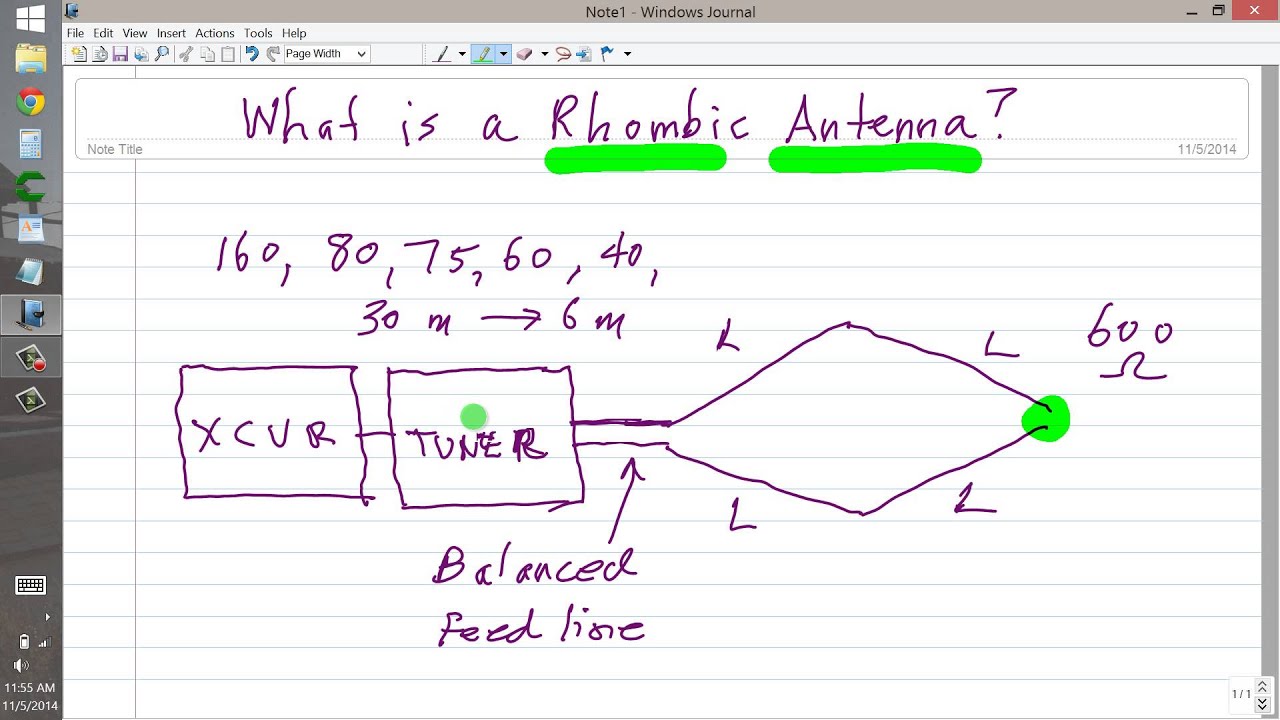 Note1 - Windows Journal
File Edit View Insert Actions Tools Help
Page Width
What is a Rhombic Antenna?
Note Title
11/5/2014
160, 80, 75, 60, 40,
30 m → 6 m
L L 600
Ω
XCVR TUNER
L L
Balanced
feed line
11:55 AM
11/5/2014
1/1